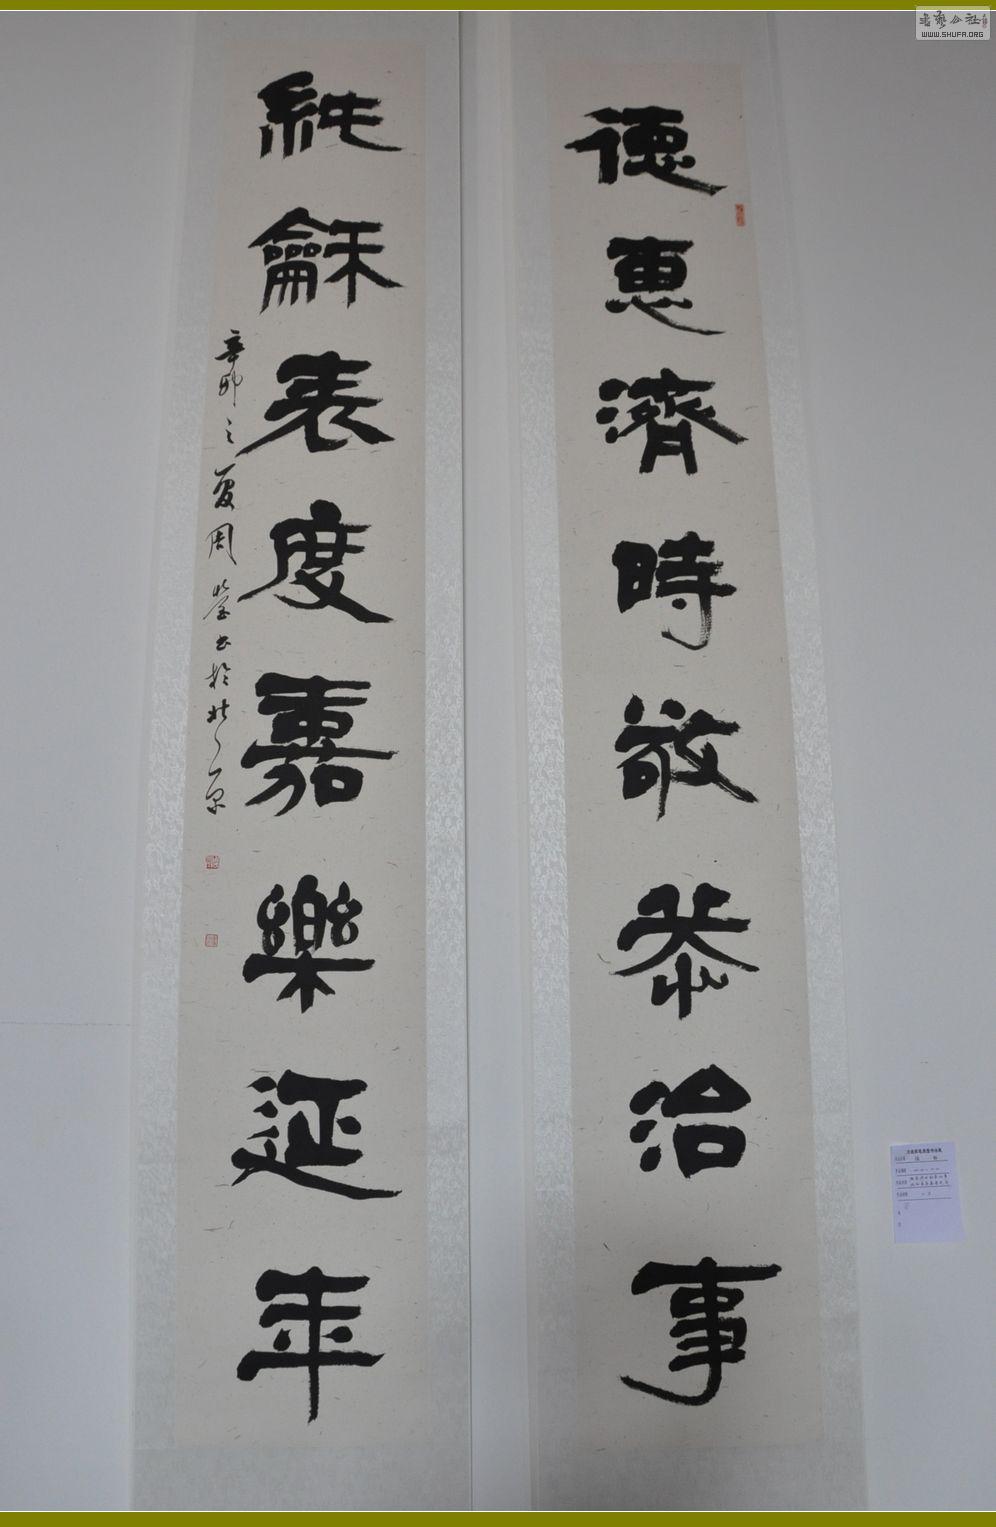 德惠濟時敬恭治事
純龢表度嘉樂延年
辛卯之夏周瑩书於北京
WWW.SHUFA.ORG